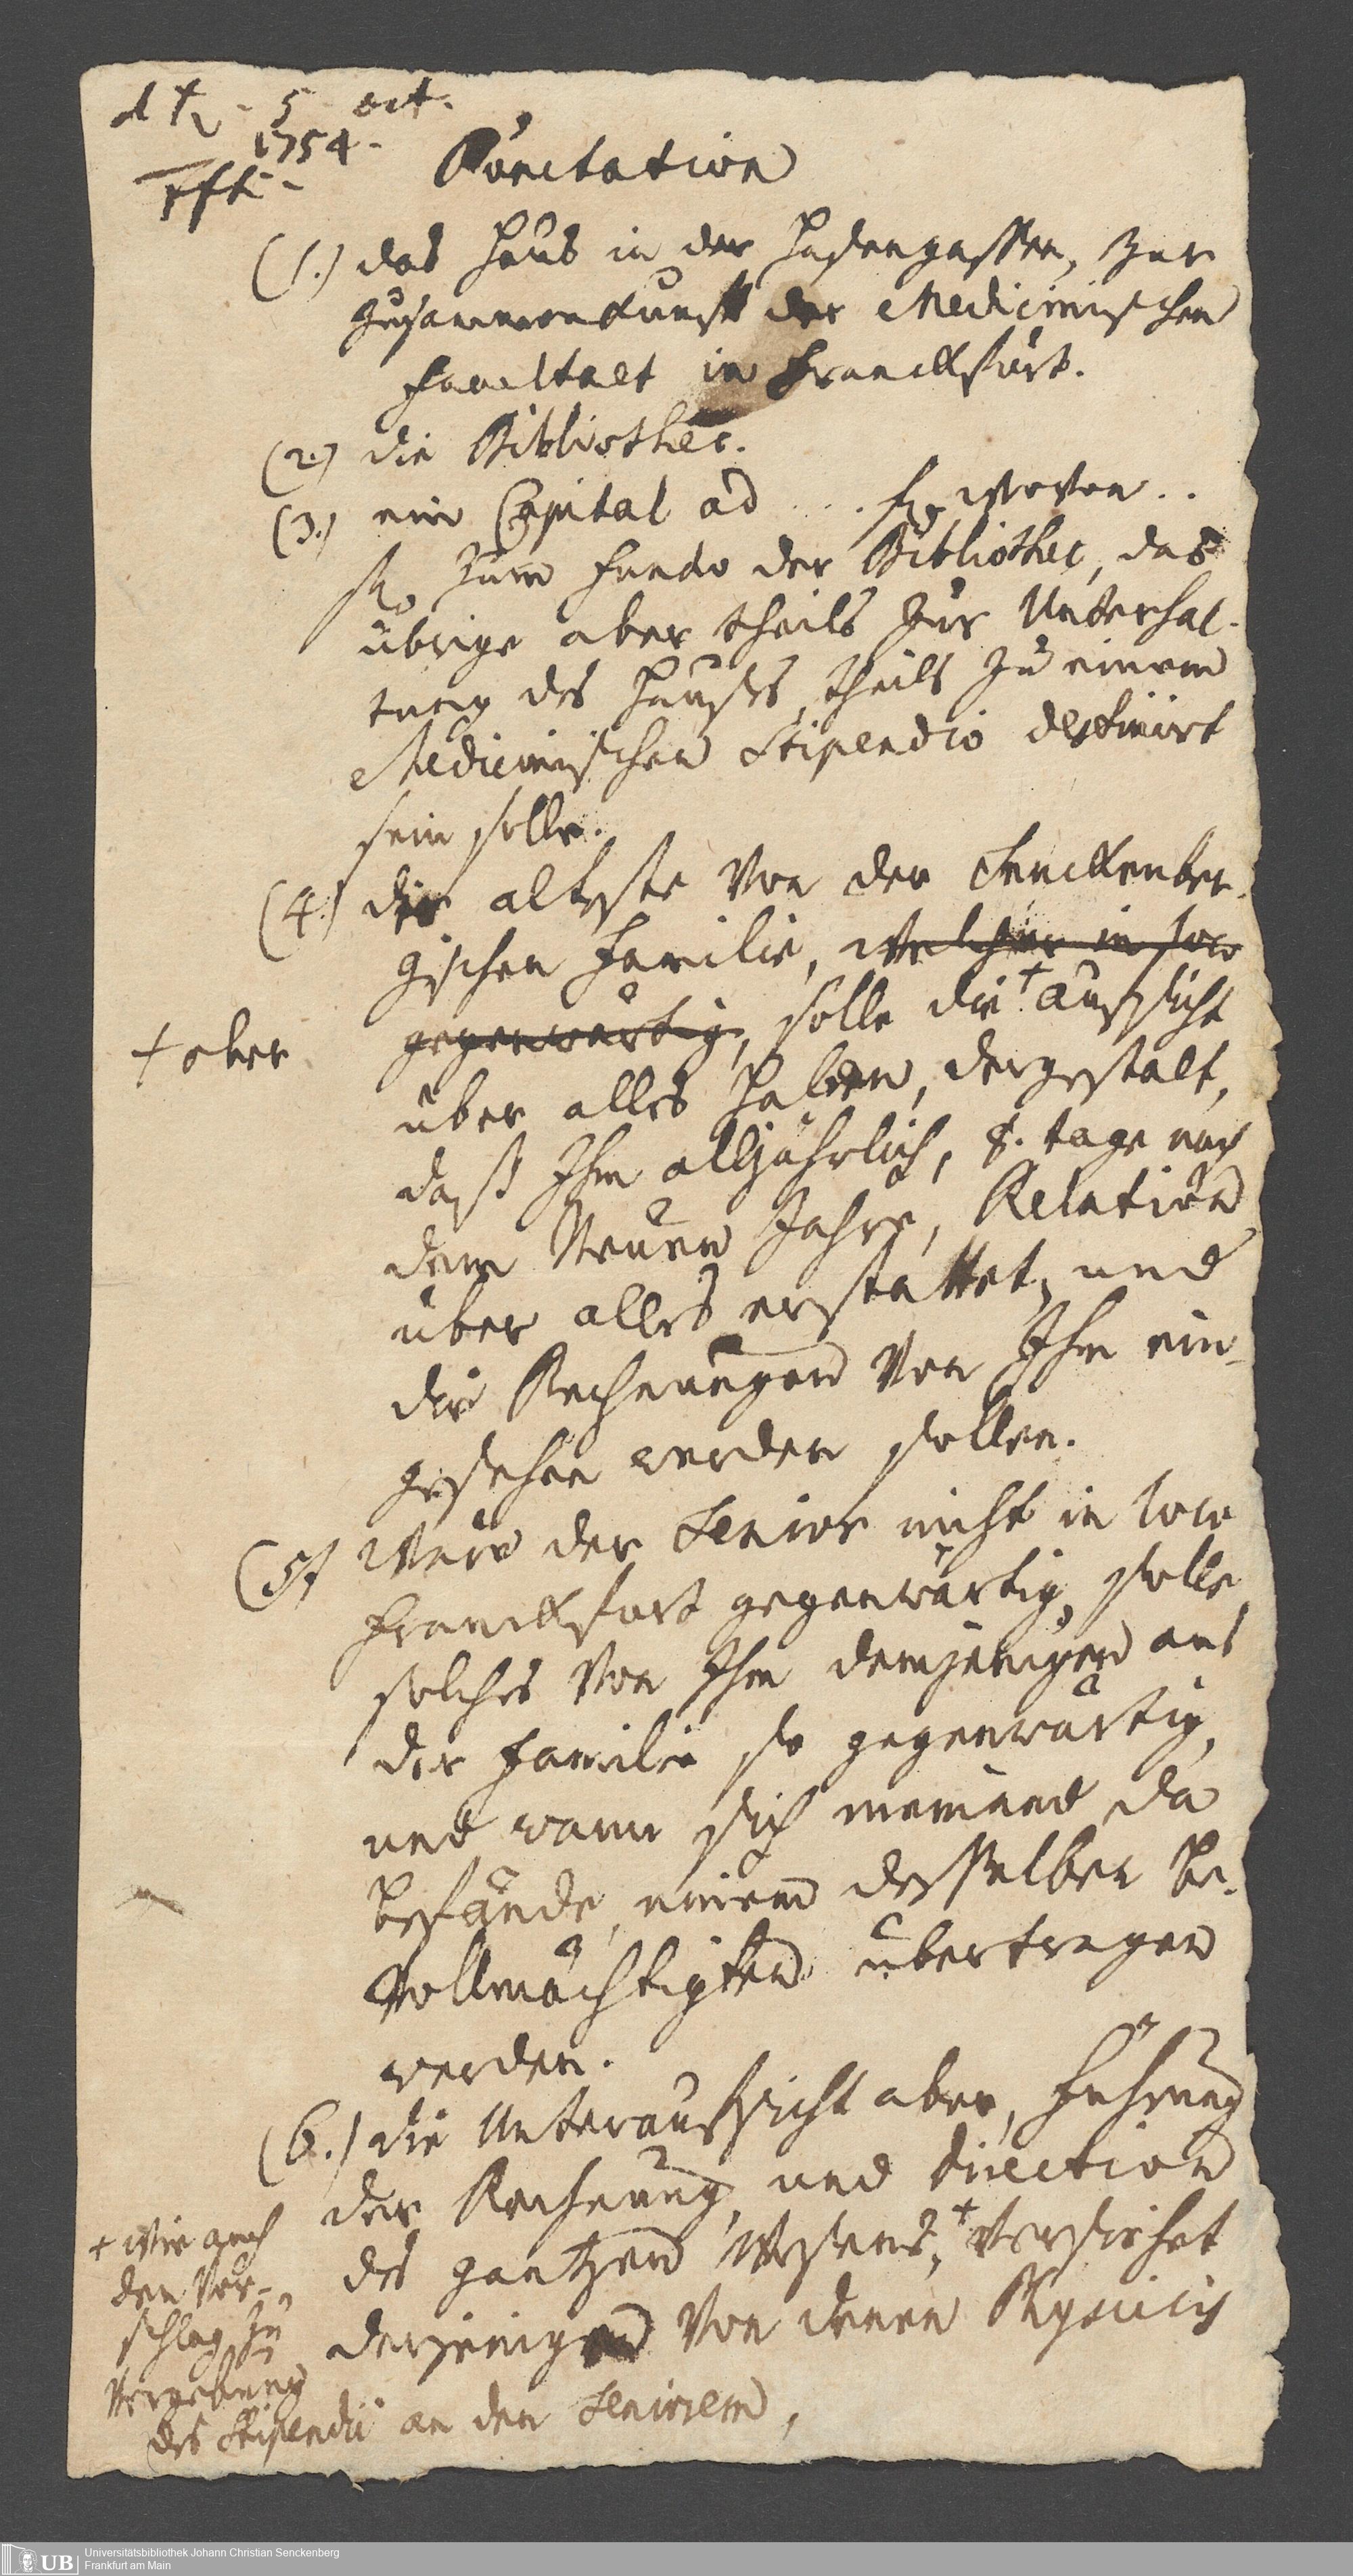 d ♄ - 5 oct.
1754.
Ffti-
Punctation
(1.) das Hauß in der Hasengassen, zur
Zusammenkunfft der Medicinischen
Facultaet in Franckfurt.
(2.) die Bibliothec.
(3.) ein Capital ad ... fl. wovon ..
fl. zum Fundo der Bibliothec, das
übrige aber theils zur Unterhal-
tung des Haußes, theils zu einem
Medicinischen Stipendio destinirt
sein solle.
(4.) der älteste von der Senckenber-
gischen Familie, welcher in loco
gegenwärtig, solle die + auffsicht
+ ober
über alles haben, dergestalt,
daß Ihm alljährlich, 8. tage nach
dem Neuen Jahre, Relation
über alles erstattet, und
die Rechnungen von Ihm ein-
gesehen werden sollen.
(5.) Wäre der Senior nicht in loco
Franckfurt gegenwärtig, solle
solches von Ihm demjenigen aus
der Familie so gegenwärtig,
und wann sich niemand da
befände, einem desselben be-
vollmächtigten übertragen
werden.
(6.) die Unterauffsicht aber, Führung
der Rechnung, und Direction
des gantzen Wesens, + versiehet
derjenige von denen Physicis
+ wie auch
den Vor-
schlag zu
Vergebung
des Stipendii an den Seniorem,
Universitätsbibliothek Johann Christian Senckenberg
UB Frankfurt am Main